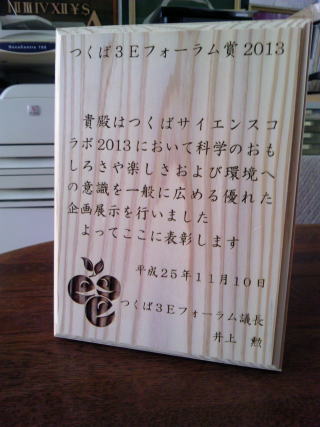 つくば3Eフォーラム賞2013
貴殿はつくばサイエンスコ
ラボ2013において科学のおも
しろさや楽しさおよび環境へ
の意識を一般に広める優れた
企画展示を行いました
よってここに表彰します
平成25年11月10日
つくば3Eフォーラム議長
井上 勲